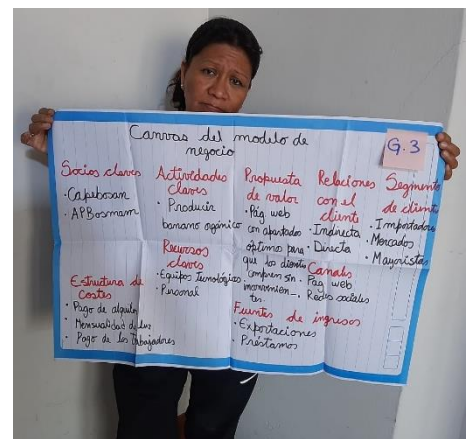 Canvas del modelo de
negocio
G.3
Socios claves
· Capebosan
· APBosmam
Actividades
claves
· Producir
banano orgánico
Recursos
claves
· Equipos tecnológicos
· Personal
Propuesta
de valor
· Pág web
con apartados
óptimos para
que los clientes
compren sin
inconvenien-
tes.
Relaciones
con el
cliente
· Indirecta
· Directa
Canales
· Pag web
· Redes sociales
Segmento
de cliente
· Importadores
· Mercados
· Mayoristas
Estructura de
costes
· Pago de alquiler
· Mensualidad de luz
· Pago de los trabajadores
Fuentes de ingresos
· Exportaciones
· Préstamos